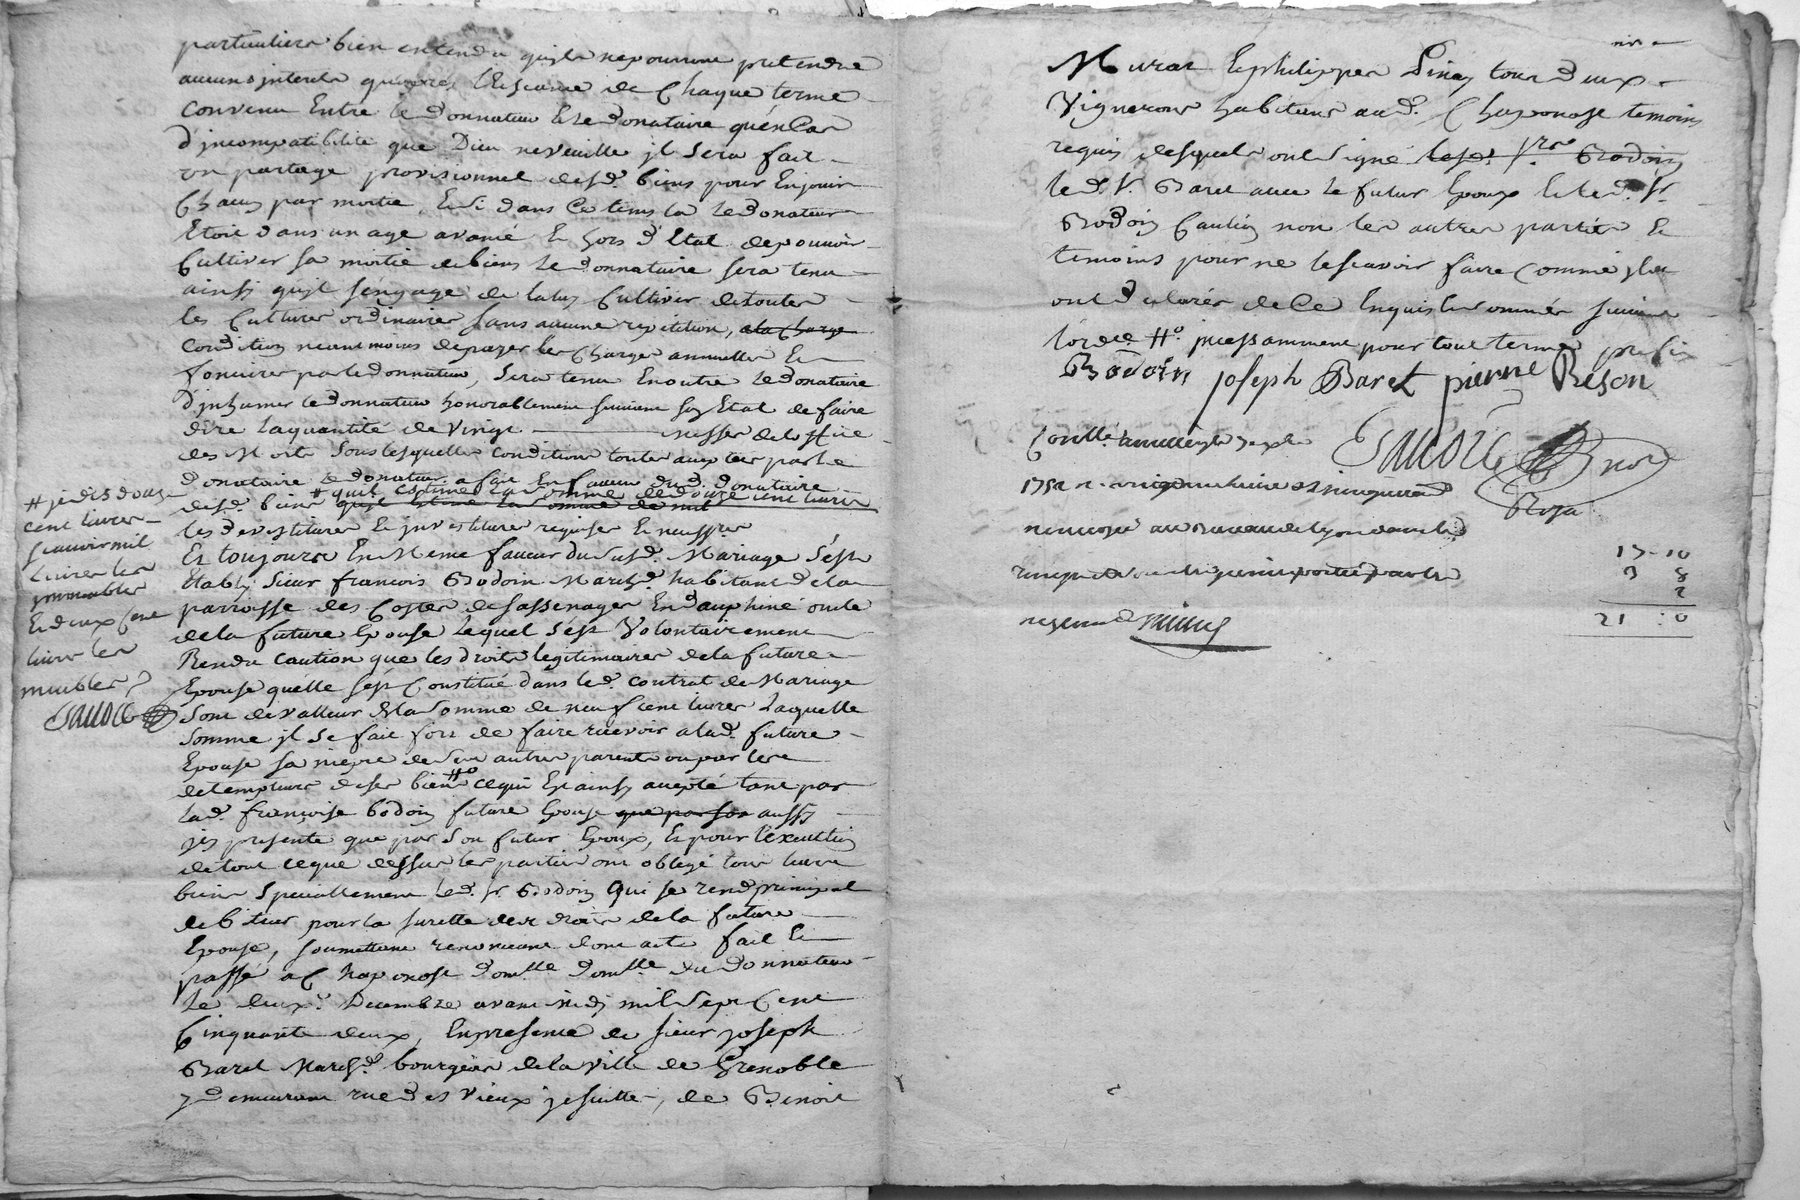 particuliers bien entendu qu'ils ne pourront pretendre
aucuns interets qu'apres l'Escheance de Chaque terme
convenu Entre le donnateur & le donataire qu'en Cas
d'jncompatibilité que Dieu ne veuille jl Sera fait
un partage provisionnel desd. biens pour En jouir
Chacun par moitié, Et Si dans Ce tems la le donateur
Etoit dans un age avancé Et hors d'Etat de pouvoir
Cultiver Sa moitié de biens Le donnataire sera tenu
ainsy qu'jl s'engage de la luy Cultiver de toutes
les Cultures ordinaires sans aucune repetition, a la Charge
Condition neantmoins de payer les Charges annuelles Et
foncieres par le donnateur, Sera tenu En outre le donataire
d'jnhumer le donnateur honorablement suivant son Etat de faire
dire La quantité de vingt messes de l'office
des Morts Sous lesquelles conditions toutes acceptées par le
donataire le donateur a fait En faveur dud. donataire
desd. biens # qu'il Estime La Somme de douze cent livres
qu'jl Estime La Somme de mil
les devestitures Et jnvestitures requises Et necess.res
Et toujours En Meme faveur dusd. Mariage S'est
Etably Sieur francois Bodoin March.d habitant de la
parroisse des Costes de Sassenages En dauphiné oncle
de la future Epouse Lequel S'est Volontairement
Rendu caution que les droits legitimaires de la future
Epouse qu'elle s'est Constitué dans led. contrat de Mariage
Sont de valleur de la Somme de neuf cent livres Laquelle
Somme jl Se fait fort de faire recevoir a lad. future
Epouse Sa niepce de Ses autres parents ou par les
detempteurs de Ses biens #o ce qui Est ainsy accepté tant par
Lad. françoise bodoin future Epouse que par son aussy
jcy presente que par Son futur Epoux, Et pour l'execution
de tout ce que dessus les parties ont obligé tous leurs
biens Specialement Led. Sr. Bodoin Qui se rend principal
debiteur pour la surette des droits de la future
Epouse, soumettant renonceant dont acte fait Et
passé a Chaponost domlle domlle du donnateur
Le deux.e Decembre avant midy mil Sept Cent
Cinquante deux, En presence de sieur joseph
Baret March.d bourgeois de la ville de Grenoble
y demeurant rue des vieux jesuittes, de Benoit
# je dis douze
cent livres
scavoir mil
livres les
jmmeubles
Et deux Cent
livres les
meubles
Murat Et philippes Pinay tous deux
Vignerons habitants aud. Chaponost temoins
requis lesquels ont signé lesd. Srs Bodoin
led. Sr. Baret avec le futur Epoux Et led. Sr.
Bodoin Caution non les autres parties Et
temoins pour ne le scavoir faire Comme jls
ont declarés de Ce Enquis Et sommés suivant
l'ord.ce #o jncessamment pour tout terme prefix
Bodoin joseph Baret pierre Beson
17-10
3 8
2
21 : 0